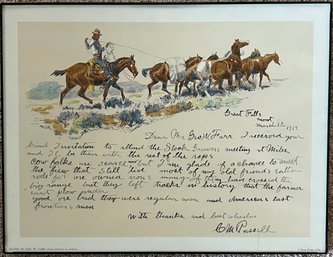 Great Falls
Mont
March 12 1919
Dear Mr Geo W Farr I received your
kind invitation to attend the Stock Growers meeting at Miles
and Il be there with the rest of the reps
Cow folks are scarse now but I'm glad of a chance to meet
the few that still live most of my old friends
rode for or owned irons many of them have crossed the
big range but they left tracks in history that the farmer
cant plow under
good or bad they were regular men and Americas last
frontier men
With thanks and best wishes
CM Russell